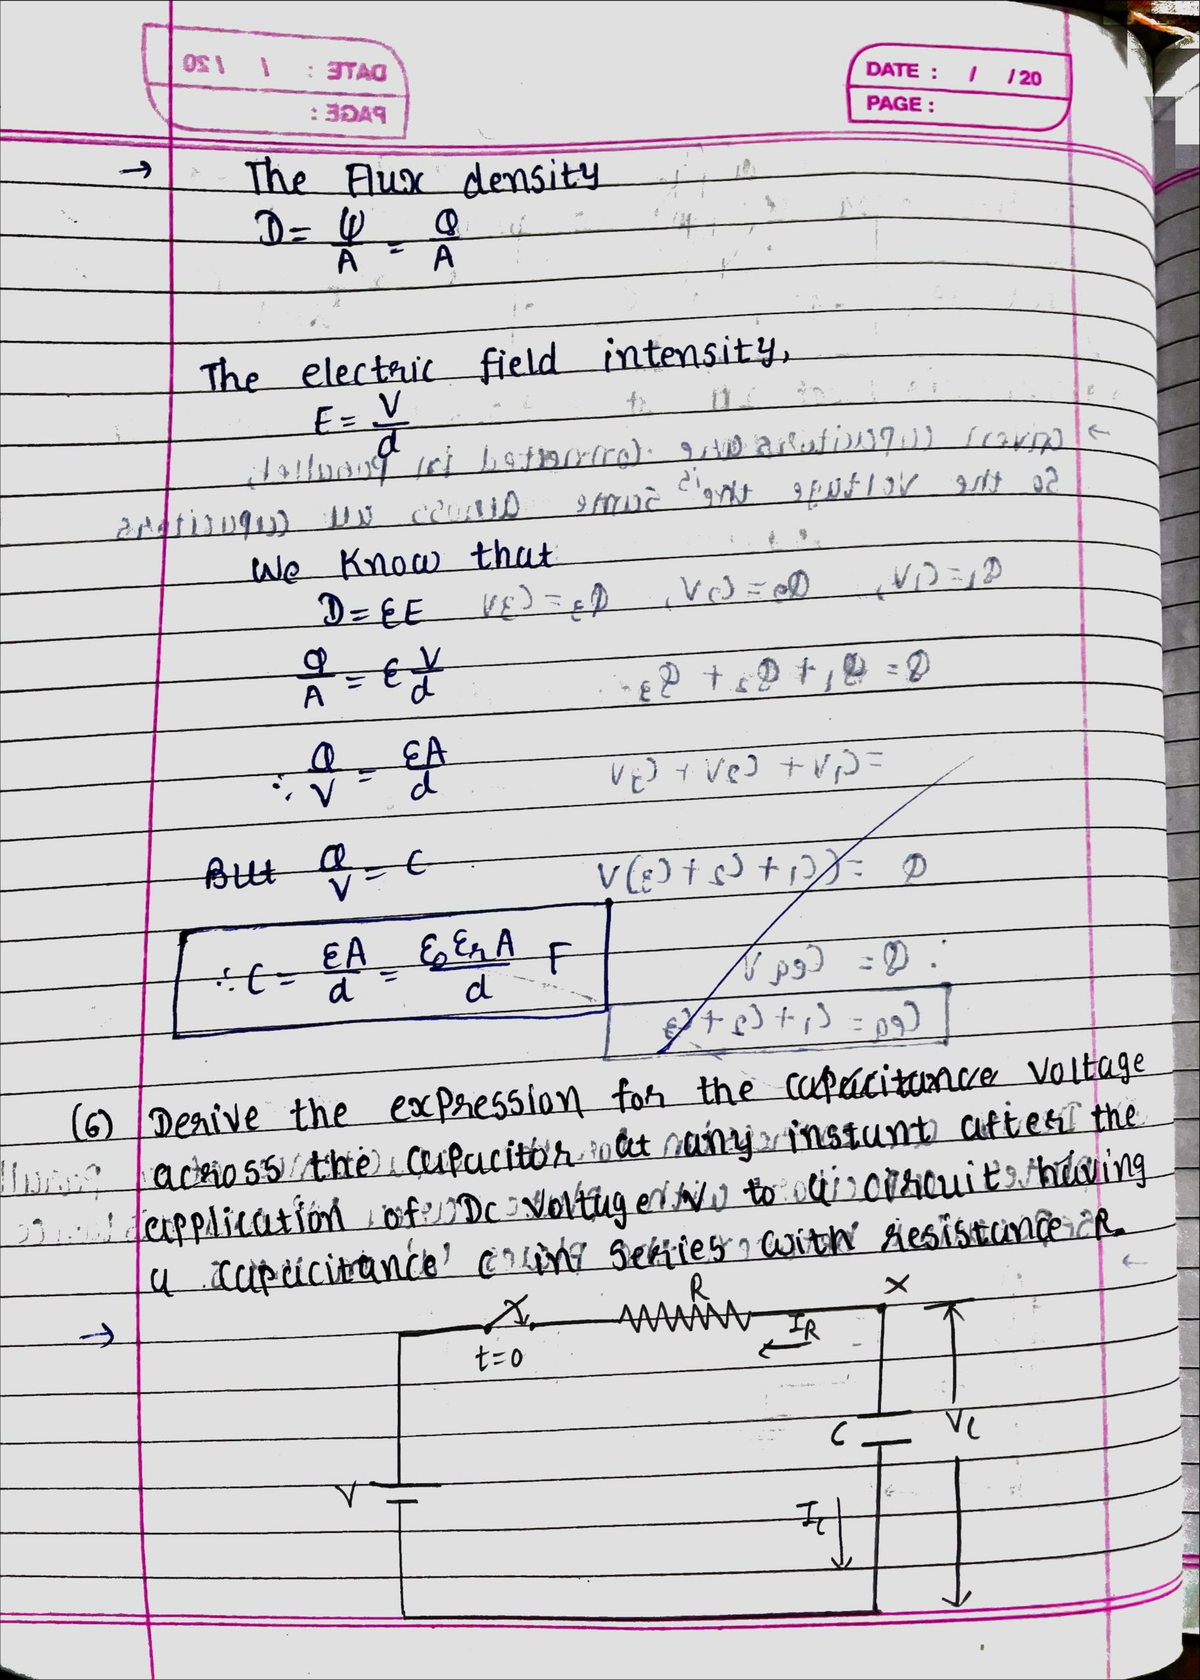 DATE : / / 20
PAGE :
→ The Flux density
D = ψ/A = Q/A
The electric field intensity,
E = V/d
We Know that
D = εE
Q/A = ε V/d
∴ Q/V = εA/d
But Q/V = C
∴ C = εA/d = ε₀εrA/d F
(6) Derive the expression for the capacitance voltage
across the capacitor at any instant after the
application of Dc voltage V to a circuit having
a capacitance c in series with resistance R.
→
R
X
t=0
IR
C
Vc
V
Ic